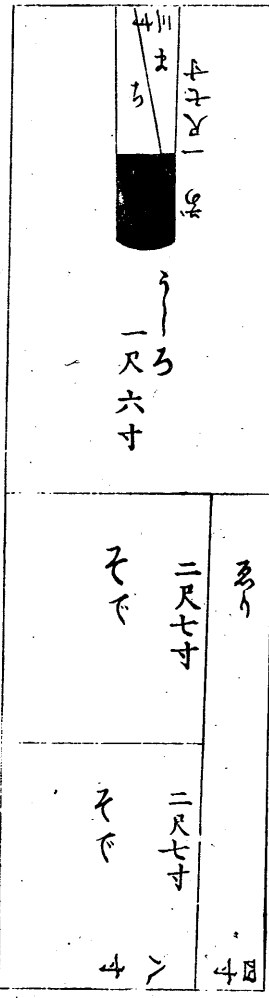 三寸
まち
前 一尺七寸
うしろ
一尺六寸
ゑり
二尺七寸
そで
二尺七寸
そで
四寸
八寸